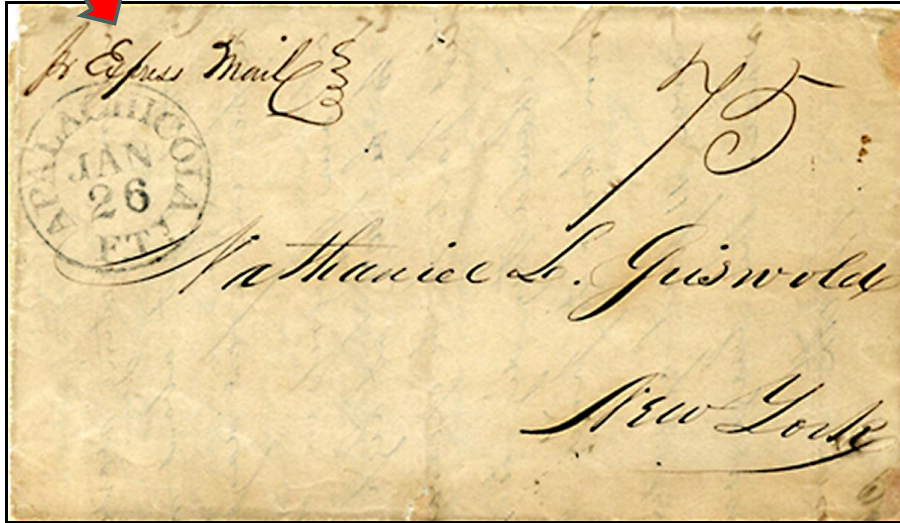 pr Express Mail
75
APALACHICOLA
JAN
26
FT.
Nathaniel L. Griswold
New York
6